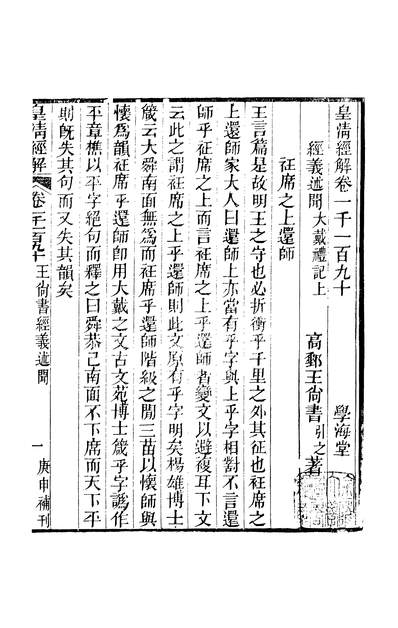 皇清經解卷一千一百九十　學海堂
經義述聞大戴禮記上　高郵王尚書引之著
衽席之上還師
王言篇是故明王之守也必折衝乎千里之外其征也衽席之
上還師家大人曰還師上亦當有乎字與上乎字相對不言還
師乎衽席之上而言衽席之上乎還師者變文以避複耳下文
云此之謂衽席之上乎還師則此文原有乎字明矣楊雄博士
箴云大舜南面無為而衽席乎還師階級之閒三苗以懷師與
懷為韻衽席乎還師即用大戴之文古文苑博士箴乎字譌作
平章樵以平字絕句而釋之曰舜恭己南面不下席而天下平
則旣失其句而又失其韻矣
皇清經解　卷一千一百九十　王尚書經義述聞　一　庚申補刊